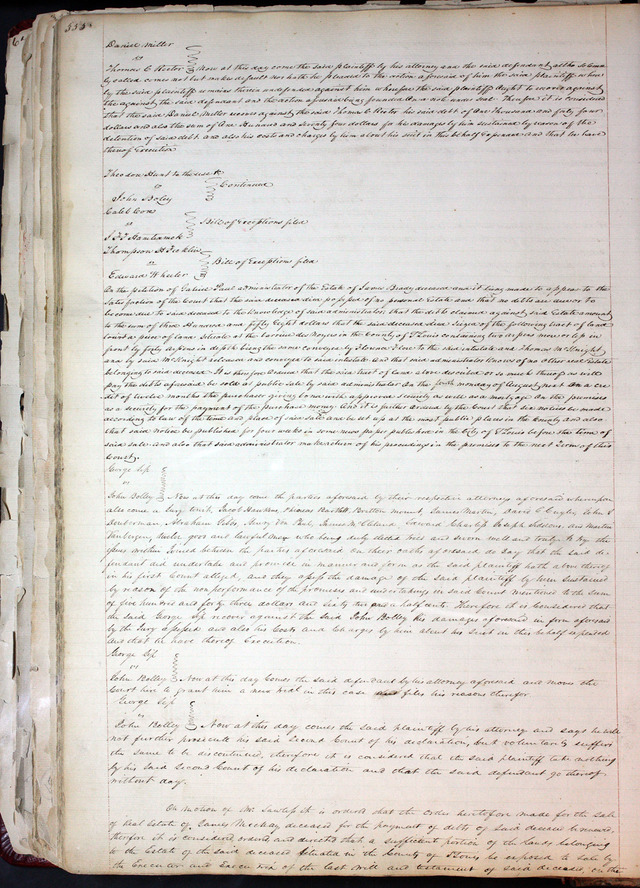 555
Daniel Miller
vs
Thomas C Rector Now at this day come the said plaintiff by his attorney and the said defendant altho solemn
ly called comes not but makes default nor hath he pleaded to the action aforesaid of him the said plaintiff where
by the said plaintiff remains therein undefended against him wherefore the said plaintiff ought to recover against
the said defendant and the action aforesaid being founded on a note under seal Therefore it is considered
that the said Daniel Miller recover against the said Thomas C Rector his said debt of One Thousand and forty four
dollars and also the sum of One Hundred and Seventy four dollars for his damages by him sustained by reason of the
detention of said debt and also his costs and charges by him about his suit in this behalf Expended and that he have
thereof Execution
Theodore Hunt to the use &c
vs Continued
John Boley
Caleb Cone
vs Bill of Exceptions filed
J F Hamtramck
Thompson H Ficklin
vs Bill of Exceptions filed
Edward Wheeler
On the petition of Gabriel Paul administrator of the Estate of James Brady deceased and it being made to appear to the
satisfaction of the Court that the said deceased died possessed of no personal Estate and that no debts are due or to
become due to said deceased to the knowledge of said administrator, that the debts claimed against said Estate amount
to the sum of three Hundred and fifty Eight dollars that the said deceased died Seized of the following tract of land
a piece of land situate at the in the County of St Louis containing two arpens more or less in
front by forty arpens in depth being the same conveyed by to the said intestate and Thomas McKnight
and by said McKnight released and conveyed to said intestate And that said administrator knows of no other real Estate
belonging to said deceased It is therefore Ordered that the said tract of land above described or so much thereof as will
pay the debts aforesaid be sold at public sale by said administrator On the fourth monday of August next On a cre
dit of twelve months the purchaser giving bond with approved security as well as a mortgage On the premises
as a security for the payment of the purchase money And it is further Ordered by the Court that six notices be made
according to law of the time and place of said sale and be set up at the most public places in the County and also
that said notice be published for four weeks in some news paper published in the City of St Louis before the time of
said sale and also that said administrator make return of his proceedings in the premises to the next Term of this
Court
George Sip
vs
John Bolley Now at this day come the parties aforesaid by their respective attorneys aforesaid whereupon
also came a Jury towit, Jacob Hawkins, Phineas Bartlett, Britton mount, James Martin, David C John L
Abraham Henry James M Edward Joseph and Martin
twelve good and lawful men who being duly elected tried and sworn well and truly to try the
issue within joined between the parties aforesaid on their oaths aforesaid do say that the said de-
fendant did undertake and promise in manner and form as the said plaintiff hath above thereof
in his first Count alleged, and they assess the damage of the said plaintiff by him sustained
by reason of the nonperformance of the promises and undertakings in said Count mentioned to the sum
of five hundred and forty three dollars and sixty two and a half cents. Therefore it is Considered that
the said George Sip recover against the said John Bolley his damages aforesaid in form aforesaid
by the Jury assessed and also his Costs and Charges by him about his Suit in this behalf expended
and that he have thereof Execution.
George Sip
vs
John Bolley Now at this day Comes the said defendant by his attorney aforesaid and moves the
Court here to grant him a new trial in this case and files his reasons therefor
George Sip
vs
John Bolley Now at this day comes the said plaintiff by his attorney and says he will
not further prosecute his said second Count of his declaration, but voluntarily suffers
the same to be discontinued, therefore it is considered that the said plaintiff take nothing
by his said Second Count of his declaration and that the said defendant go thereof
without day.
On motion of Mr Lawless it is ordered that the Order heretofore made for the sale
of Real Estate of James Mackay deceased for the payment of debts of said deceased be
therefore it is considered ordered and directed that a sufficient portion of the lands belonging
to the Estate of the said deceased situated in the County of St Louis be exposed to sale by
the Executor and Executrix of the last will and testament of said deceased, on the